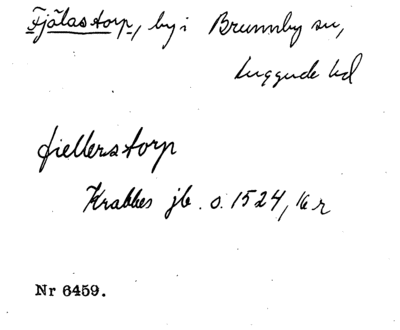 Fjälastorp, by i Brunnby sn,
Luggude hd
fiellerstorp
Krabbes jb. o. 1524, 16 r
Nr 6459.